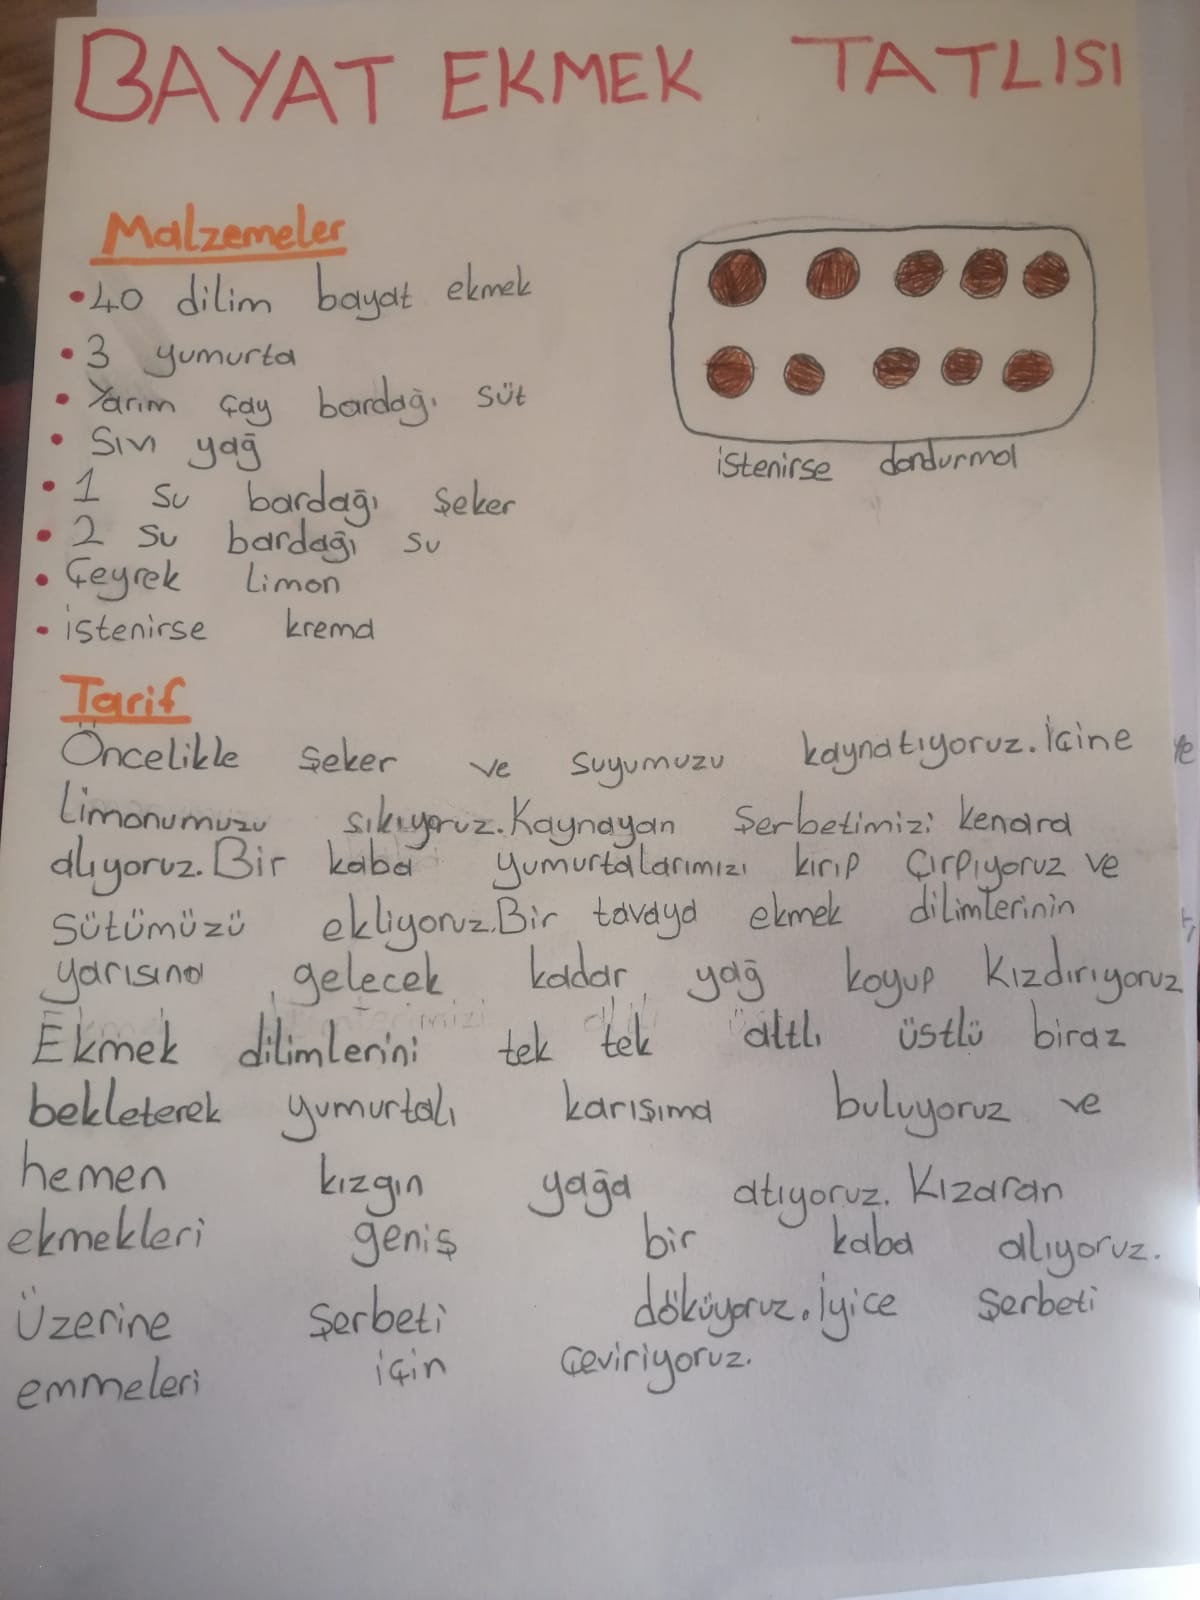 BAYAT EKMEK TATLISI
Malzemeler
• 40 dilim bayat ekmek
• 3 yumurta
• Yarım çay bardağı süt
• Sıvı yağ
• 1 su bardağı şeker
• 2 su bardağı su
• Çeyrek limon
• istenirse krema
istenirse dondurma
Tarif
Öncelikle şeker ve suyumuzu kaynatıyoruz. İçine
limonumuzu sıkıyoruz. Kaynayan şerbetimizi kenara
alıyoruz. Bir kaba yumurtalarımızı kırıp çırpıyoruz ve
sütümüzü ekliyoruz. Bir tavaya ekmek dilimlerinin
yarısına gelecek kadar yağ koyup kızdırıyoruz
Ekmek dilimlerini tek tek altlı üstlü biraz
bekleterek yumurtalı karışıma buluyoruz ve
hemen kızgın yağa atıyoruz. Kızaran
ekmekleri geniş bir kaba alıyoruz.
Üzerine şerbeti döküyoruz. İyice şerbeti
emmeleri için çeviriyoruz.